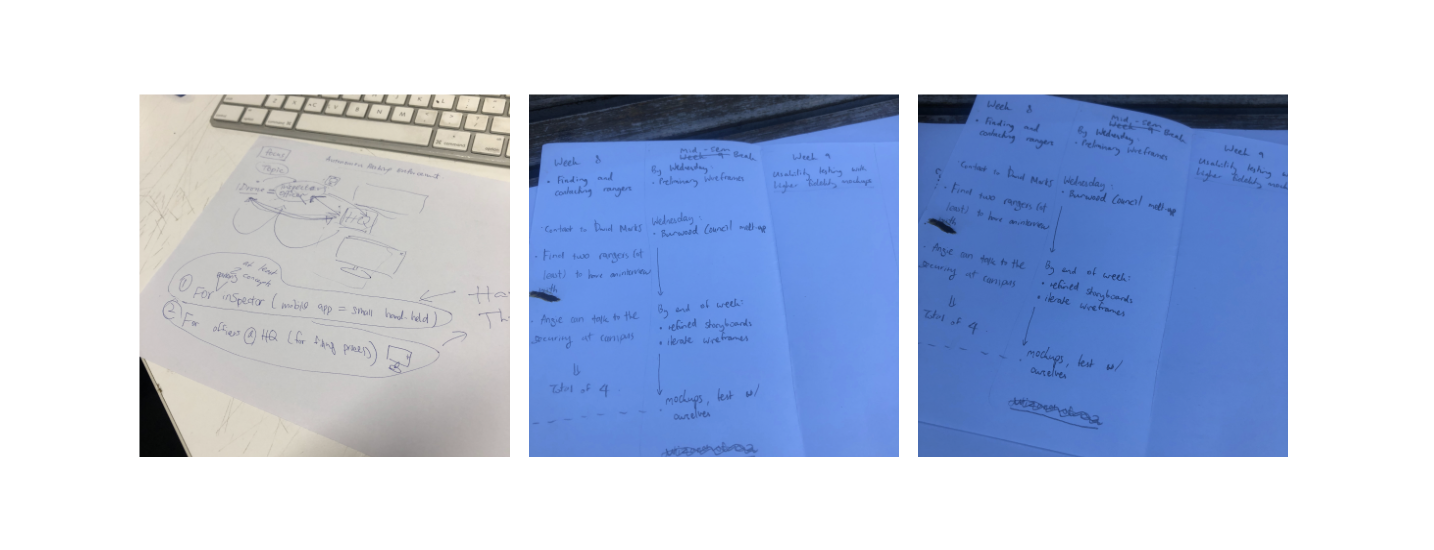 Topic
HQ
at least
concepts
① For inspector (mobile app = small hand-held)
② For officers @ HQ (for fining process)
Week 8
• Finding and
contacting rangers
Contact is David Marks
• Find two rangers (at
least) to have an interview
with
• Angie can talk to the
security at campus
Total of 4
Mid-sem
Week 9 Break
By Wednesday:
• Preliminary wireframes
Wednesday:
• Burwood Council meet-up
By end of week:
• refined storyboards
• iterate wireframes
mockups, test w/
ourselves
Week 9
Usability testing with
higher fidelity mockups
Week 8
• Finding and
contacting rangers
Contact is David Marks
• Find two rangers (at
least) to have an interview
with
• Angie can talk to the
security at campus
Total of 4
Mid-sem
Week 9 Break
By Wednesday:
• Preliminary wireframes
Wednesday:
• Burwood Council meet-up
By end of week:
• refined storyboards
• iterate wireframes
mockups, test w/
ourselves
Week 9
Usability testing w
higher fidelity mock